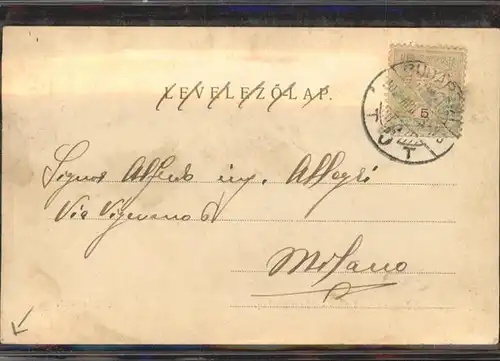 LEVELEZŐLAP.
BUDAPEST
Signor Alfredo ing. Allegri
Via Vigevano 6
Milano